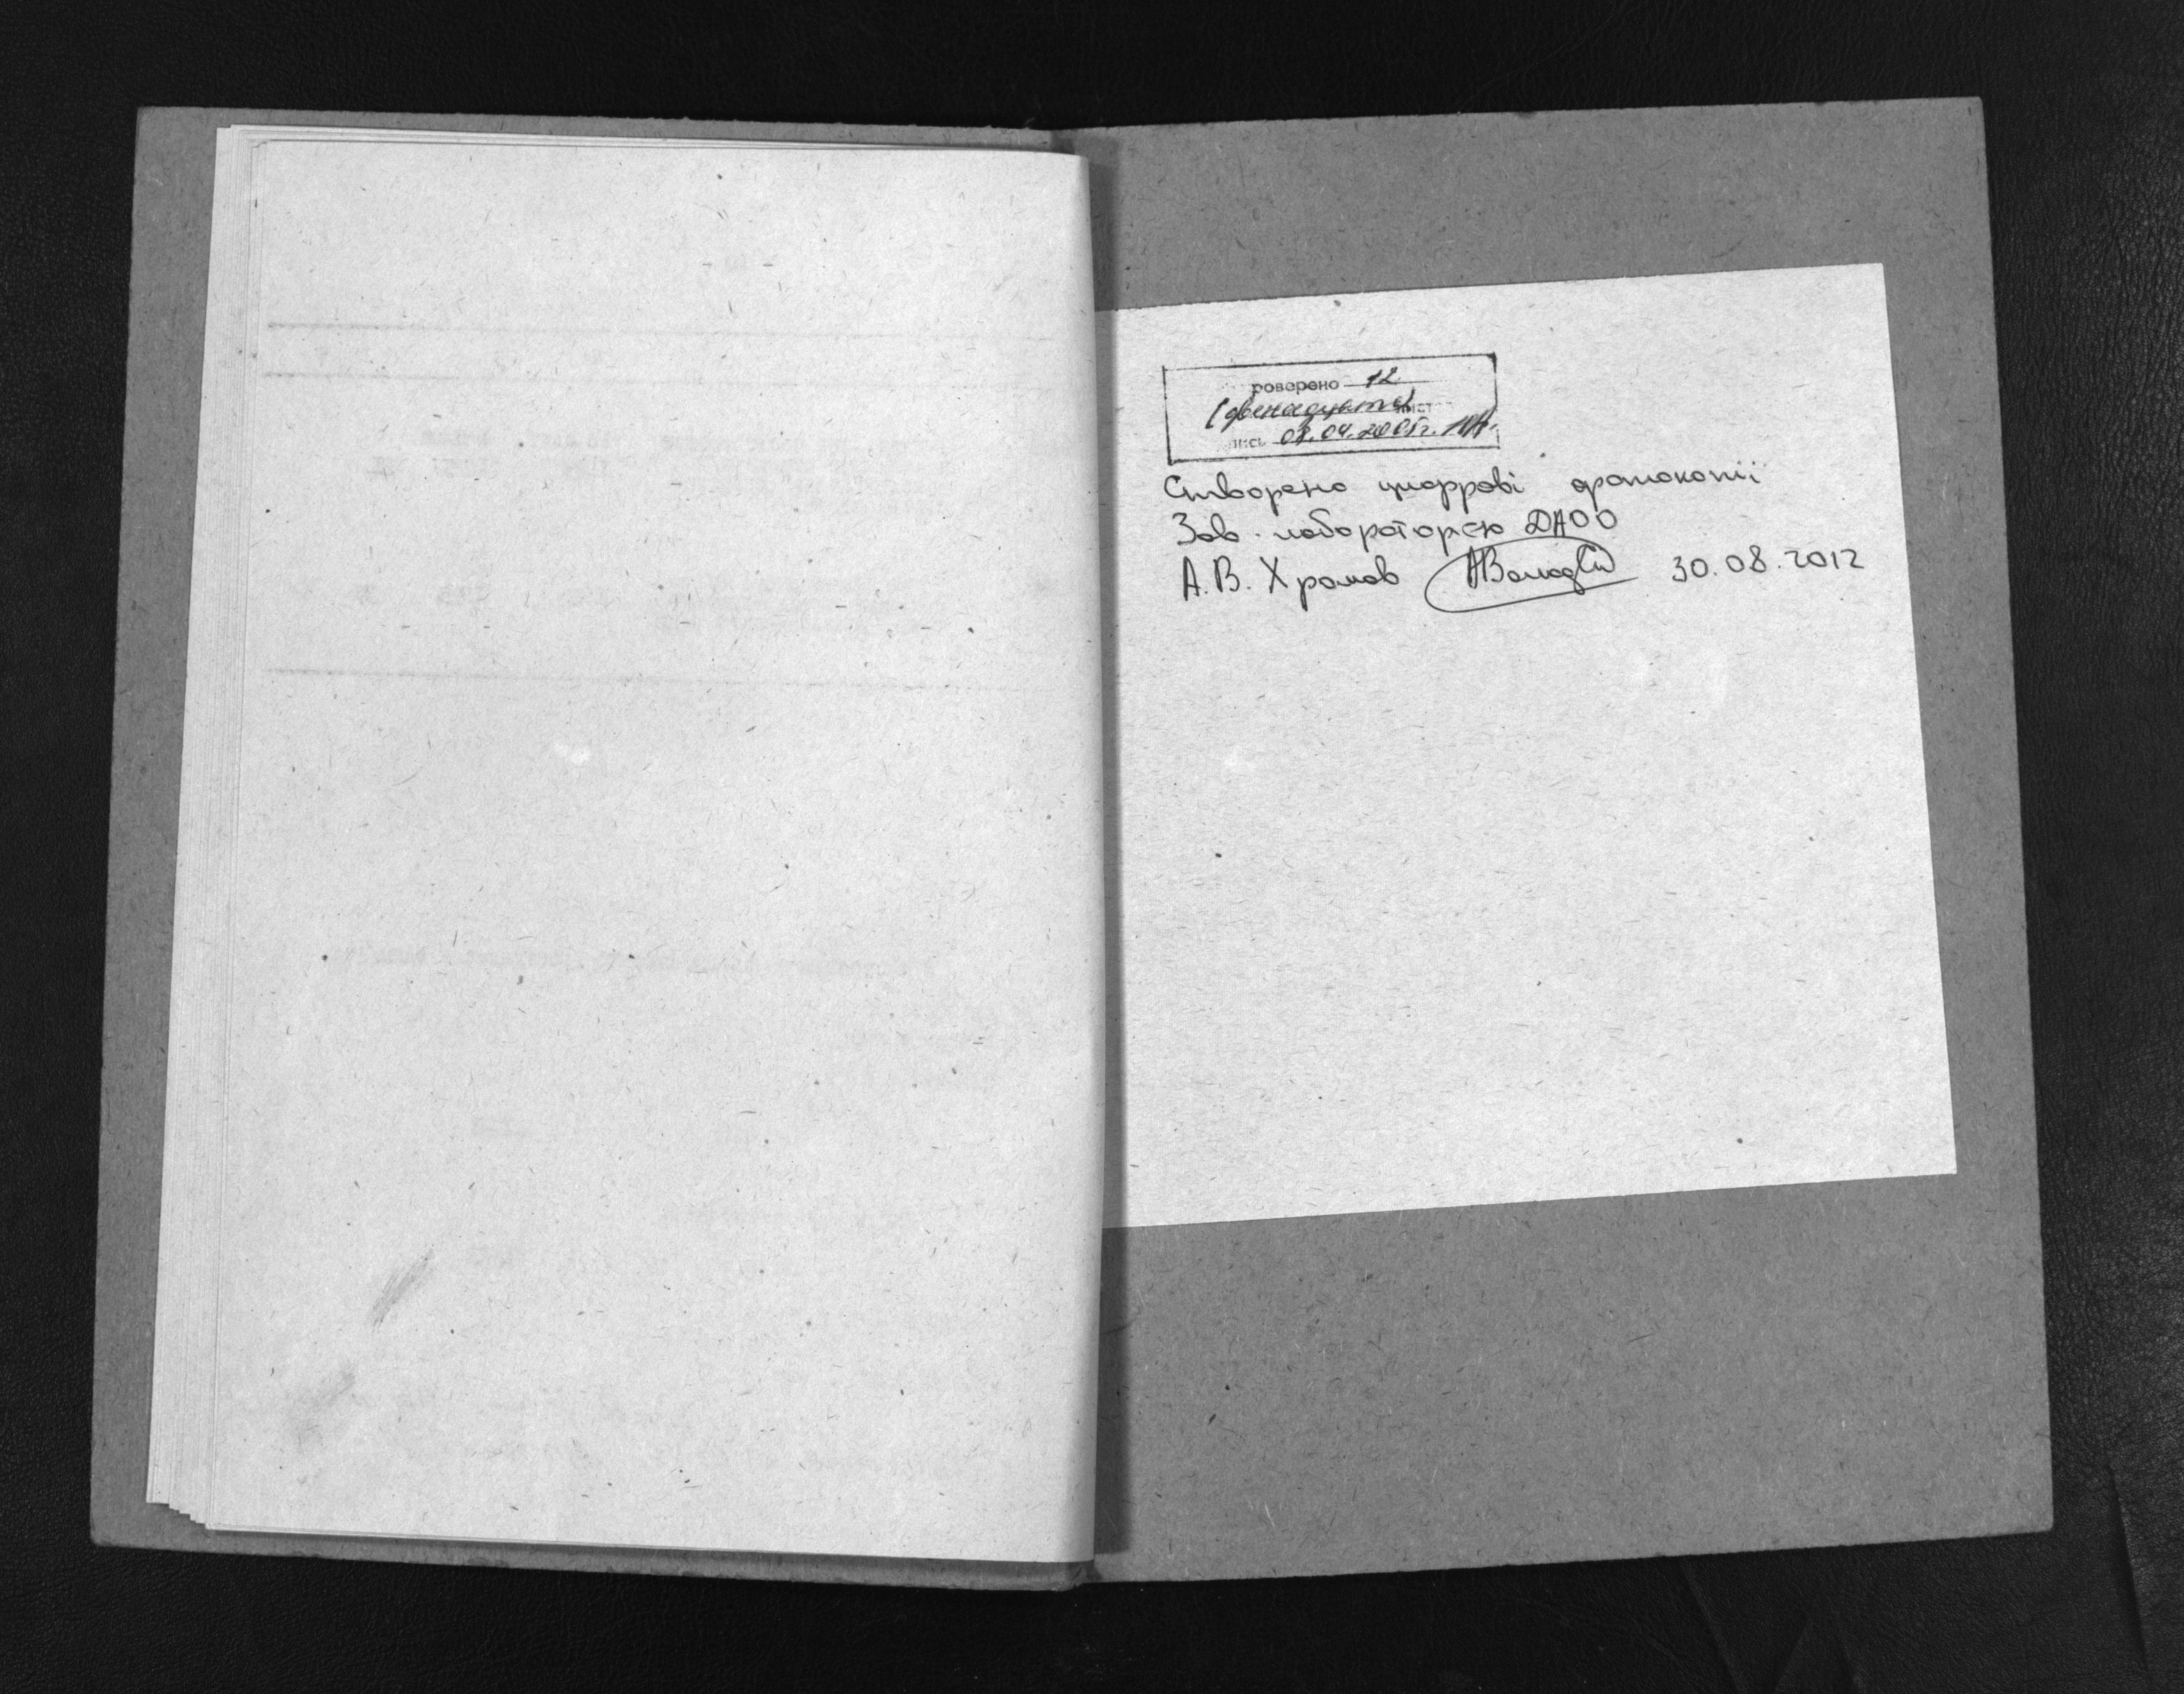 роверено 12
(двенадцать) лист
пись 08.04.2005г.
Створено цифрові фотокопії
Зав. лабораторією ДАОО
А.В. Хромов 30.08.2012